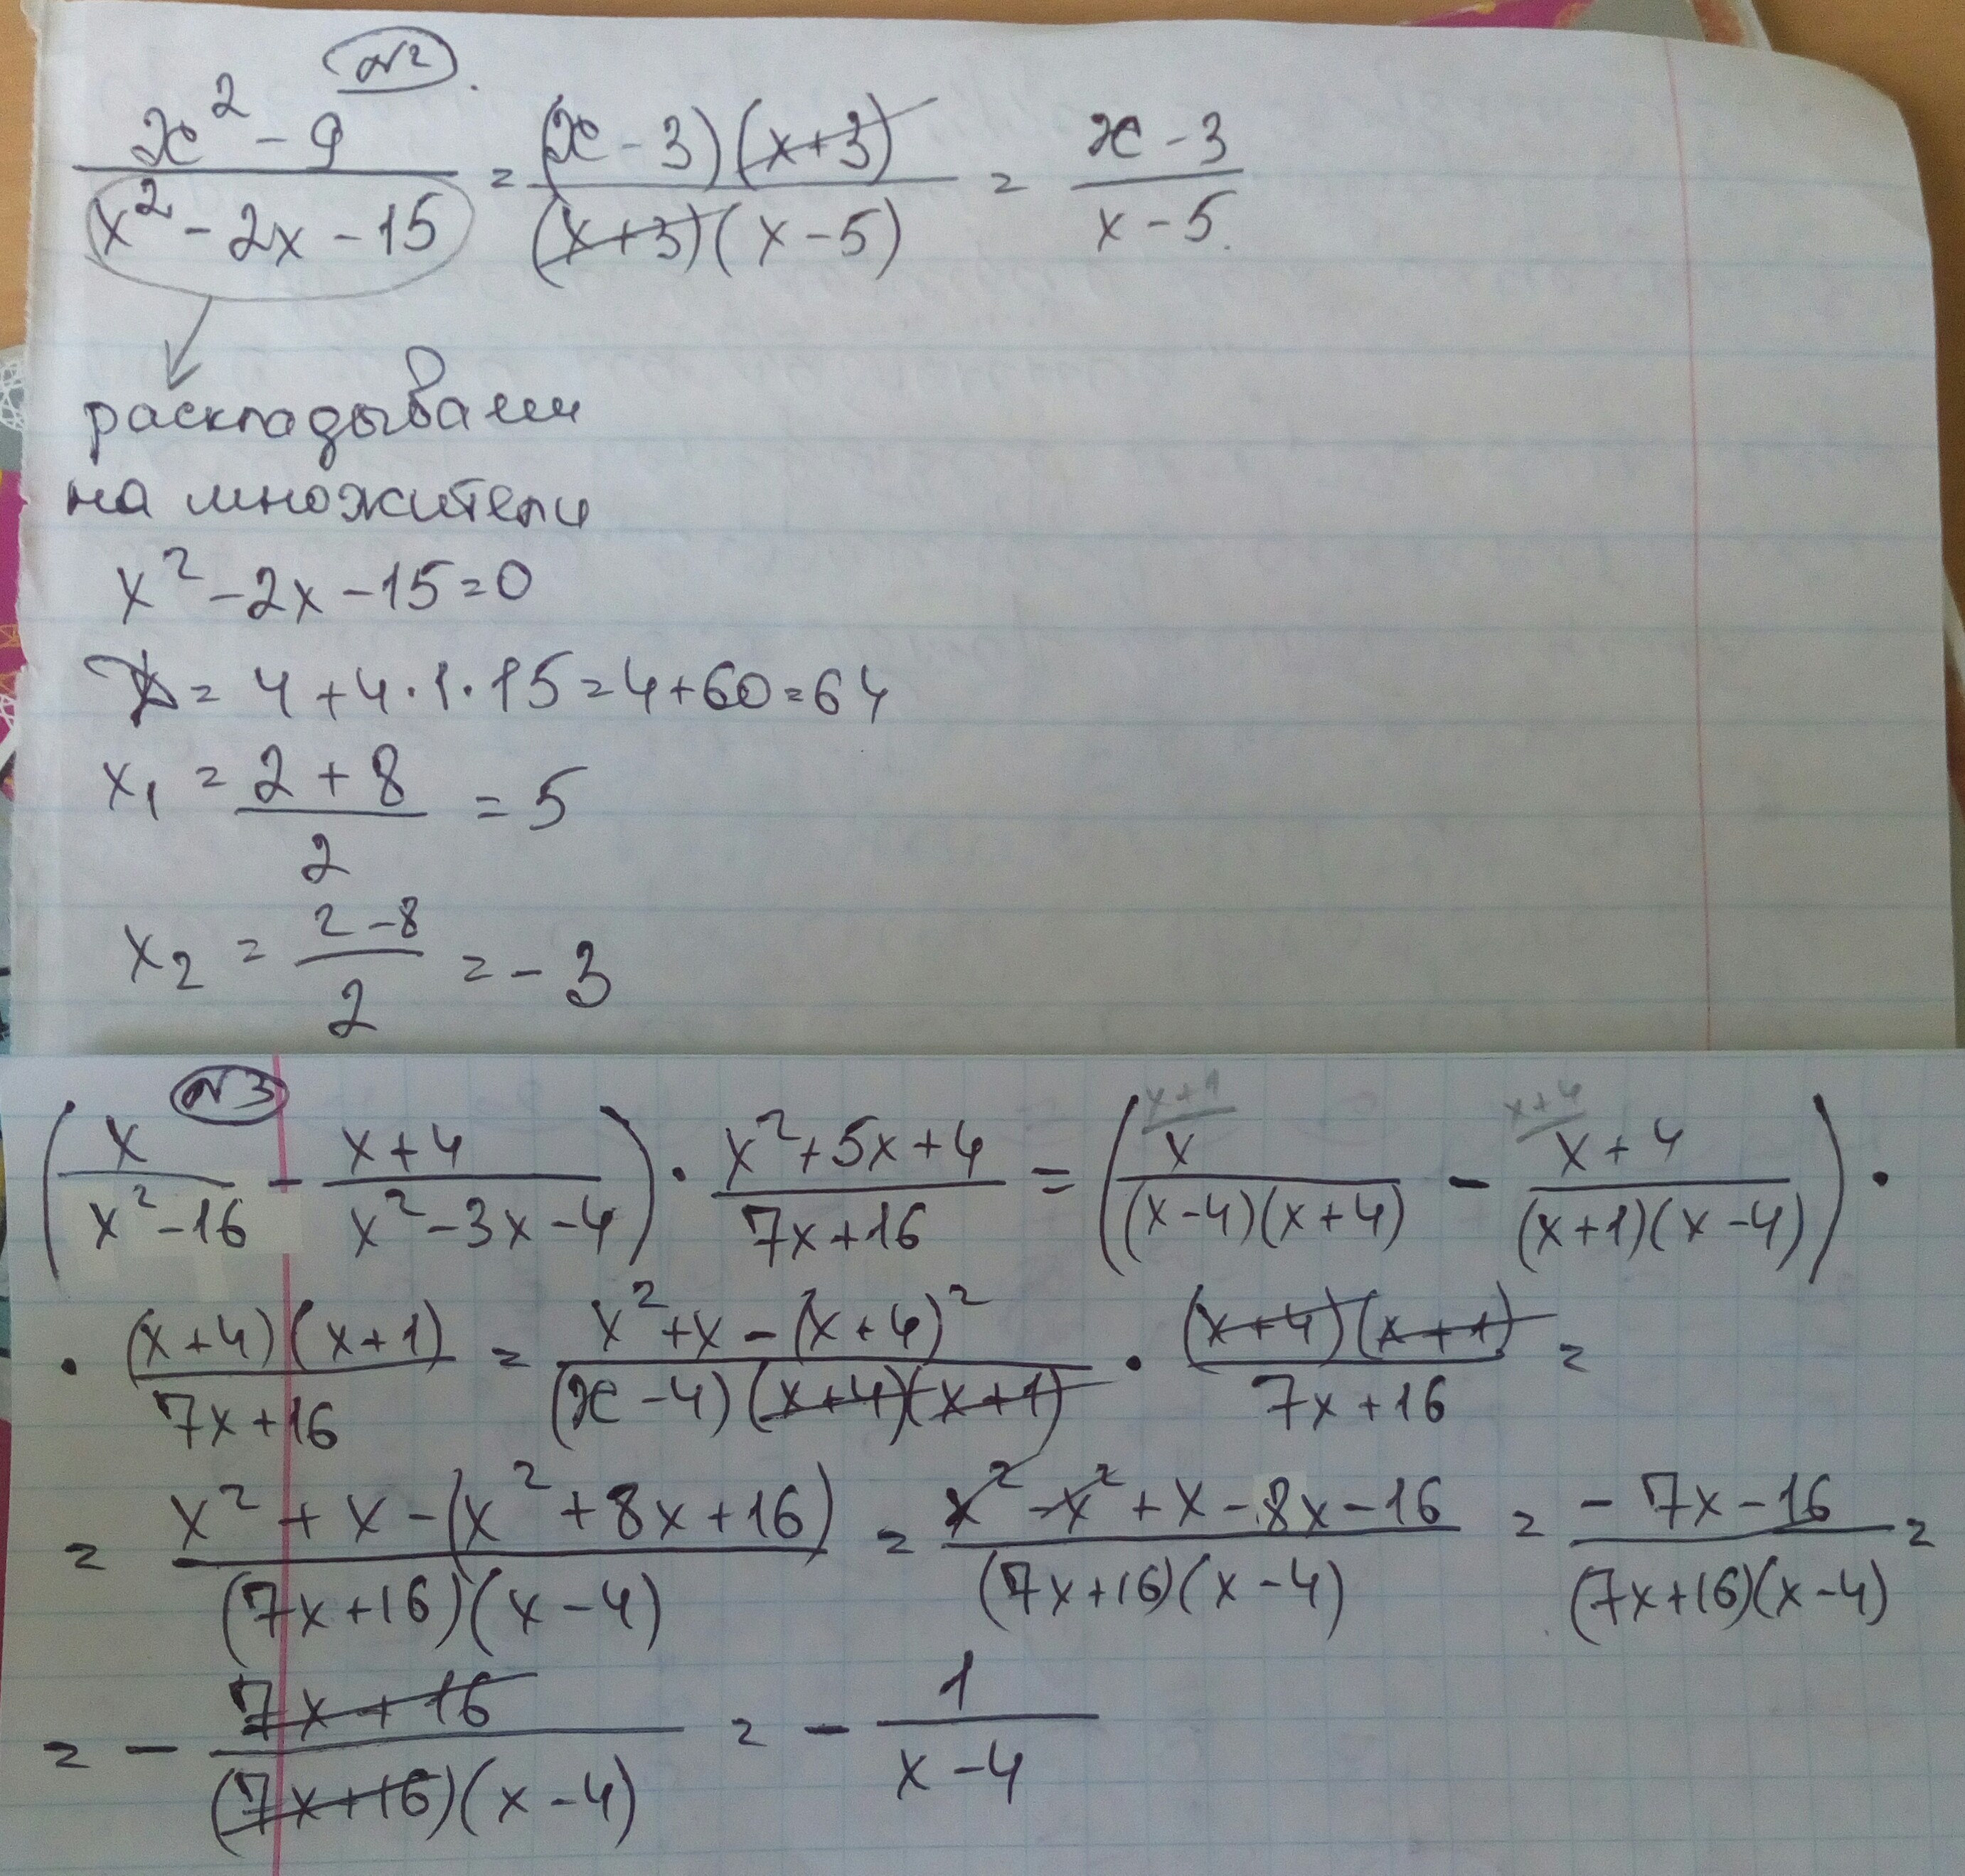 №2.
x² - 9 / x² - 2x - 15 = (x - 3)(x+3) / (x+3)(x - 5) = x - 3 / x - 5.
раскладываем
на множители
x² - 2x - 15 = 0
D = 4 + 4 · 1 · 15 = 4 + 60 = 64
x₁ = 2 + 8 / 2 = 5
x₂ = 2 - 8 / 2 = - 3
№3
(x / x² - 16 - x+4 / x² - 3x - 4) · x² + 5x + 4 / 7x + 16 = (x+1 x / (x-4)(x+4) - x+4 x+4 / (x+1)(x-4)) ·
· (x+4)(x+1) / 7x+16 = x² + x - (x+4)² / (x-4)(x+4)(x+1) · (x+4)(x+1) / 7x+16 =
= x² + x - (x² + 8x + 16) / (7x+16)(x-4) = x² - x² + x - 8x - 16 / (7x+16)(x-4) = - 7x - 16 / (7x+16)(x-4) =
= - 7x + 16 / (7x+16)(x-4) = - 1 / x - 4